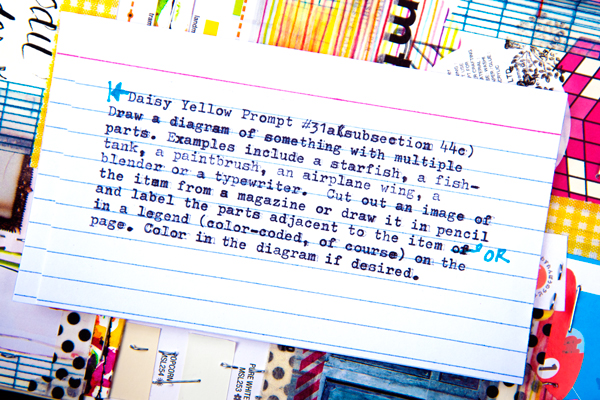 Daisy Yellow Prompt #31a(subsection 44c)
Draw a diagram of something with multiple
parts. Examples include a starfish, a fish-
tank, a paintbrush, an airplane wing, a
blender or a typewriter. Cut out an image of
the item from a magazine or draw it in pencil
and label the parts adjacent to the item of OR
in a legend (color-coded, of course) on the
page. Color in the diagram if desired.
POPCORN
MSL254
PURE WHITE
MSL253
1